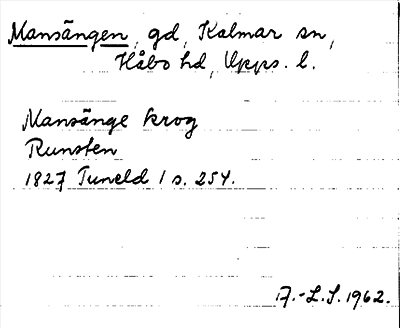 Mansängen, gd, Kalmar sn,
Håbo hd, Upps. l.
Mansänge krog
Runsten
1827 Tuneld 1 s. 254.
A.-L.S. 1962.